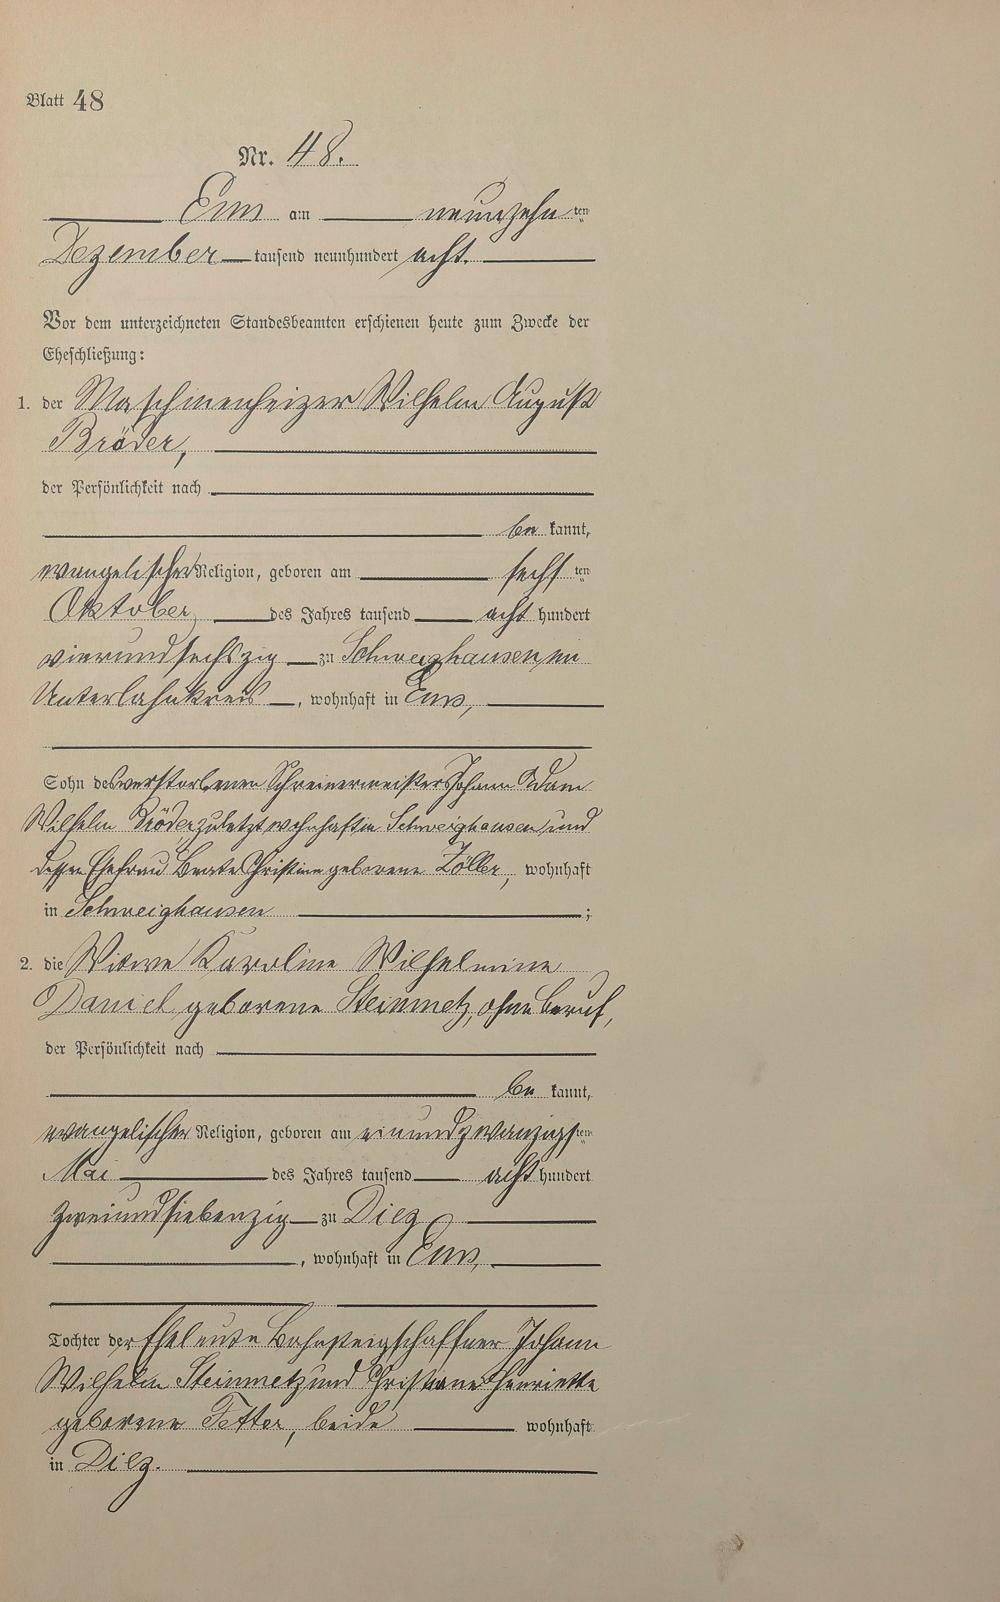 Blatt 48
Nr. 48.
Ems am neunzehnten
Dezember tausend neunhundert acht.
Vor dem unterzeichneten Standesbeamten erschienen heute zum Zwecke der
Eheschließung:
1. der Maschinenheizer Wilhelm August
Bröder,
der Persönlichkeit nach
be kannt,
evangelischer Religion, geboren am sechsten
Oktober, des Jahres tausend acht hundert
vierundsechszig zu Schweighausen, im
Unterlahnkreis, wohnhaft in Ems,
Sohn des verstorbenen Schreinermeisters Johann Adam
Wilhelm Bröder, zuletzt wohnhaft in Schweighausen, und
dessen Ehefrau Beate Christine geborene Zöller, wohnhaft
in Schweighausen ;
2. die Witwe Karoline Wilhelmine
Daniel geborene Steinmetz, ohne Beruf,
der Persönlichkeit nach
be kannt,
evangelischer Religion, geboren am einundzwanzigsten
Mai des Jahres tausend acht hundert
zweiundsiebenzig zu Diez
, wohnhaft in Ems,
Tochter der Eheleute Bahnsteigschaffner Johann
Wilhelm Steinmetz und Christiane Henriette
geborene, beide wohnhaft
in Diez.